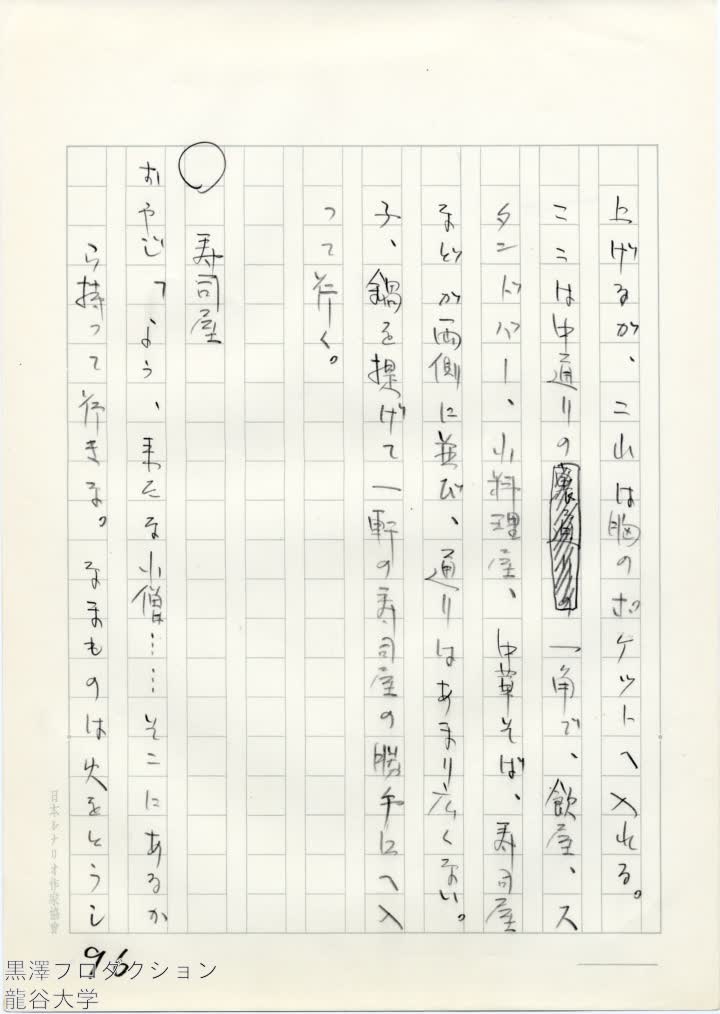 上げるが、二山は胸のポケットへ入れる。
ここは中通りの裏通りの一角で、飲屋、ス
タンドバー、小料理屋、中華そば、寿司屋
などが両側に並び、通りはあまり広くない。
子、鍋を提げて一軒の寿司屋の勝手口へ入
って行く。
○
寿司屋
おやじ「よう、来たな小僧……そこにあるか
ら持って行きな。なまものは火をとうし
日本シナリオ作家協會
96
黒澤プロダクション
龍谷大学